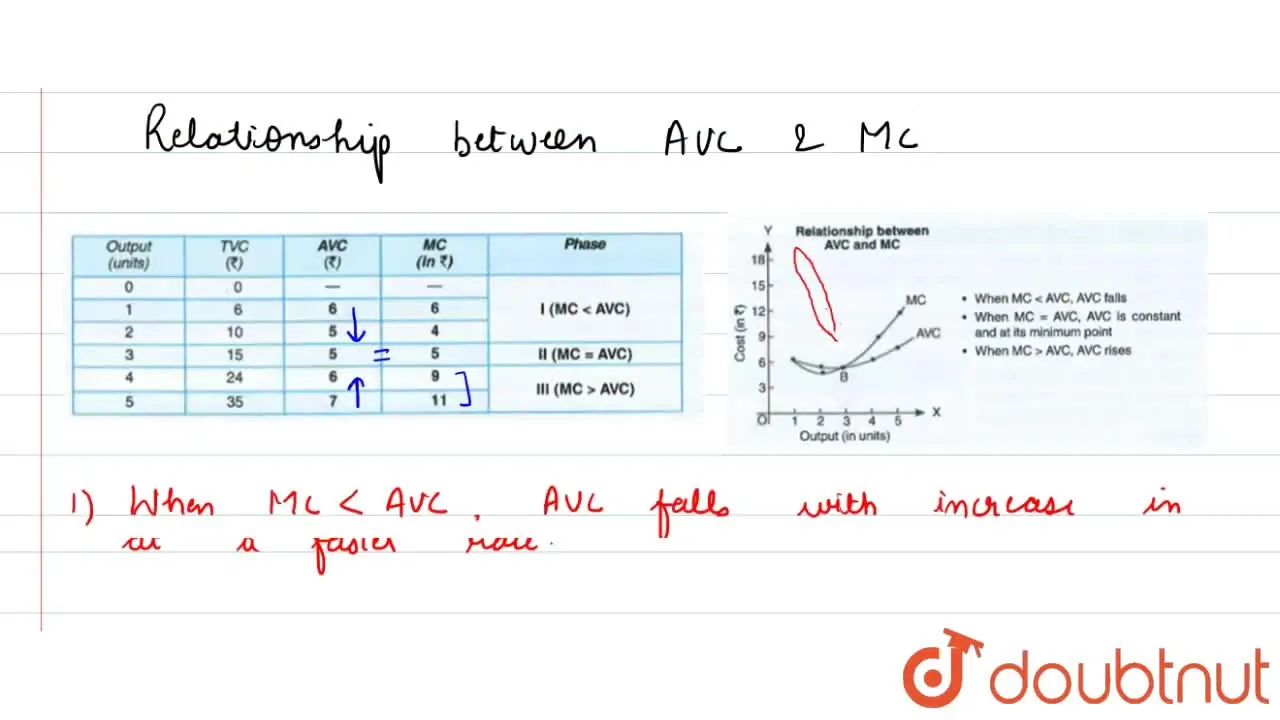 Relationship between AVC & MC
Output (units) TVC (₹) AVC (₹) MC (In ₹) Phase
0 0 — —
1 6 6 6 I (MC < AVC)
2 10 5 4
3 15 5 = 5 II (MC = AVC)
4 24 6 9 III (MC > AVC)
5 35 7 11
Y Relationship between
AVC and MC
18
15
12
9
6
3
Cost (in ₹)
MC
AVC
B
O 1 2 3 4 5 X
Output (in units)
• When MC < AVC, AVC falls
• When MC = AVC, AVC is constant
and at its minimum point
• When MC > AVC, AVC rises
1) When MC < AVC, AVC falls with increase in
at a faster rate.
doubtnut